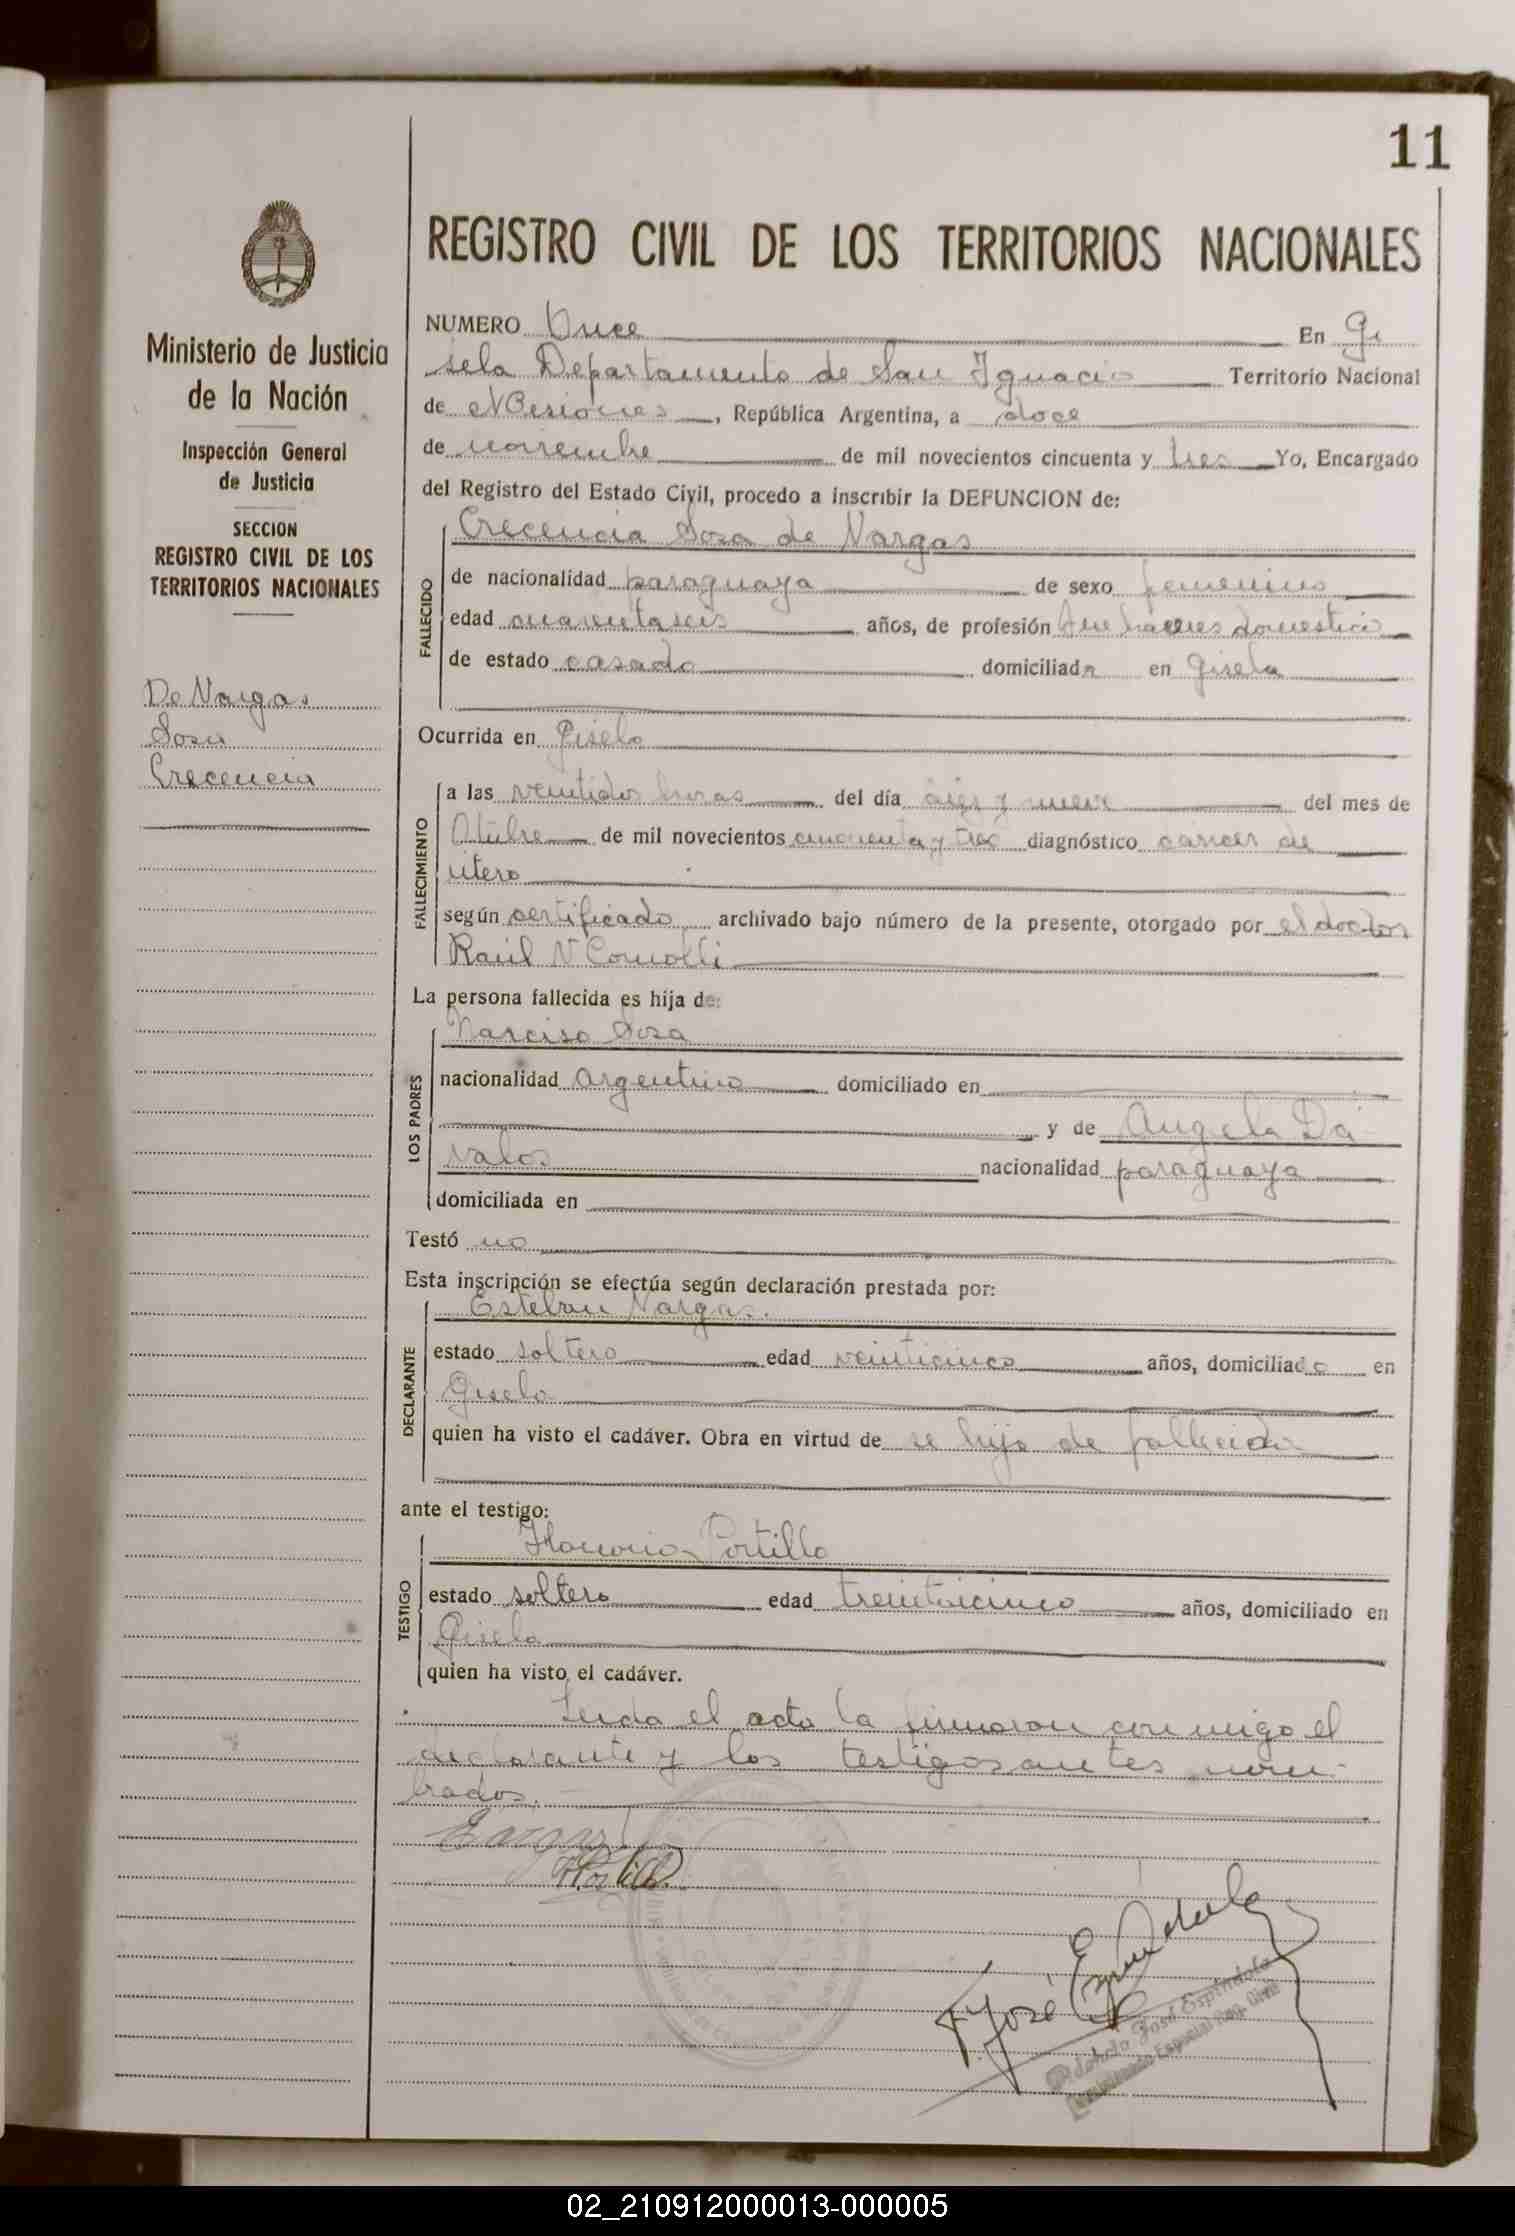 11
REGISTRO CIVIL DE LOS TERRITORIOS NACIONALES
Ministerio de Justicia
de la Nación
Inspección General
de Justicia
SECCION
REGISTRO CIVIL DE LOS
TERRITORIOS NACIONALES
De Vargas
Sosa
Crecencia
NUMERO Once En Gi
sela Departamento de San Ignacio Territorio Nacional
de Misiones, República Argentina, a doce
de noviembre de mil novecientos cincuenta y tres Yo, Encargado
del Registro del Estado Civil, procedo a inscribir la DEFUNCION de:
FALLECIDO
Crecencia Sosa de Vargas
de nacionalidad paraguaya de sexo femenino
edad cuarentaseis años, de profesión Quehaceres domestico
de estado casado domiciliada en Gisela
Ocurrida en Gisela
FALLECIMIENTO
a las veintidos horas del día diez y nueve del mes de
Otubre de mil novecientos cincuenta y tres diagnóstico cáncer de
utero
según certificado archivado bajo número de la presente, otorgado por el doctor
Raúl N Comolli
La persona fallecida es hija de:
LOS PADRES
Narciso Sosa
nacionalidad argentino domiciliado en
y de Angela Dá
valos nacionalidad paraguaya
domiciliada en
Testó no
Esta inscripción se efectúa según declaración prestada por:
DECLARANTE
Esteban Vargas.
estado soltero edad veinticinco años, domiciliado en
Gisela
quien ha visto el cadáver. Obra en virtud de se hijo de fallecida
ante el testigo:
TESTIGO
Honorio Portillo
estado soltero edad treintaicinco años, domiciliado en
Gisela
quien ha visto el cadáver.
Leida el acta la firmaron conmigo el
declarante y los testigos antes nom-
brados.
José Espíndola
José Espíndola
02_210912000013-000005